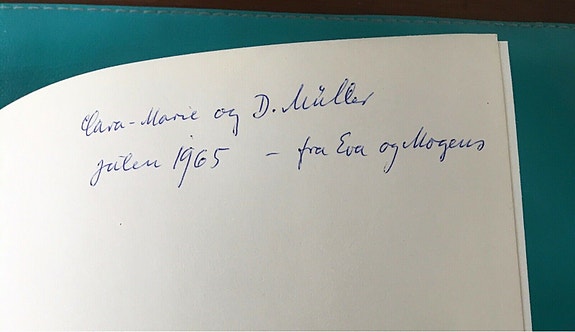 Clara-Marie og D. Müller
julen 1965 - fra Eva og Mogens